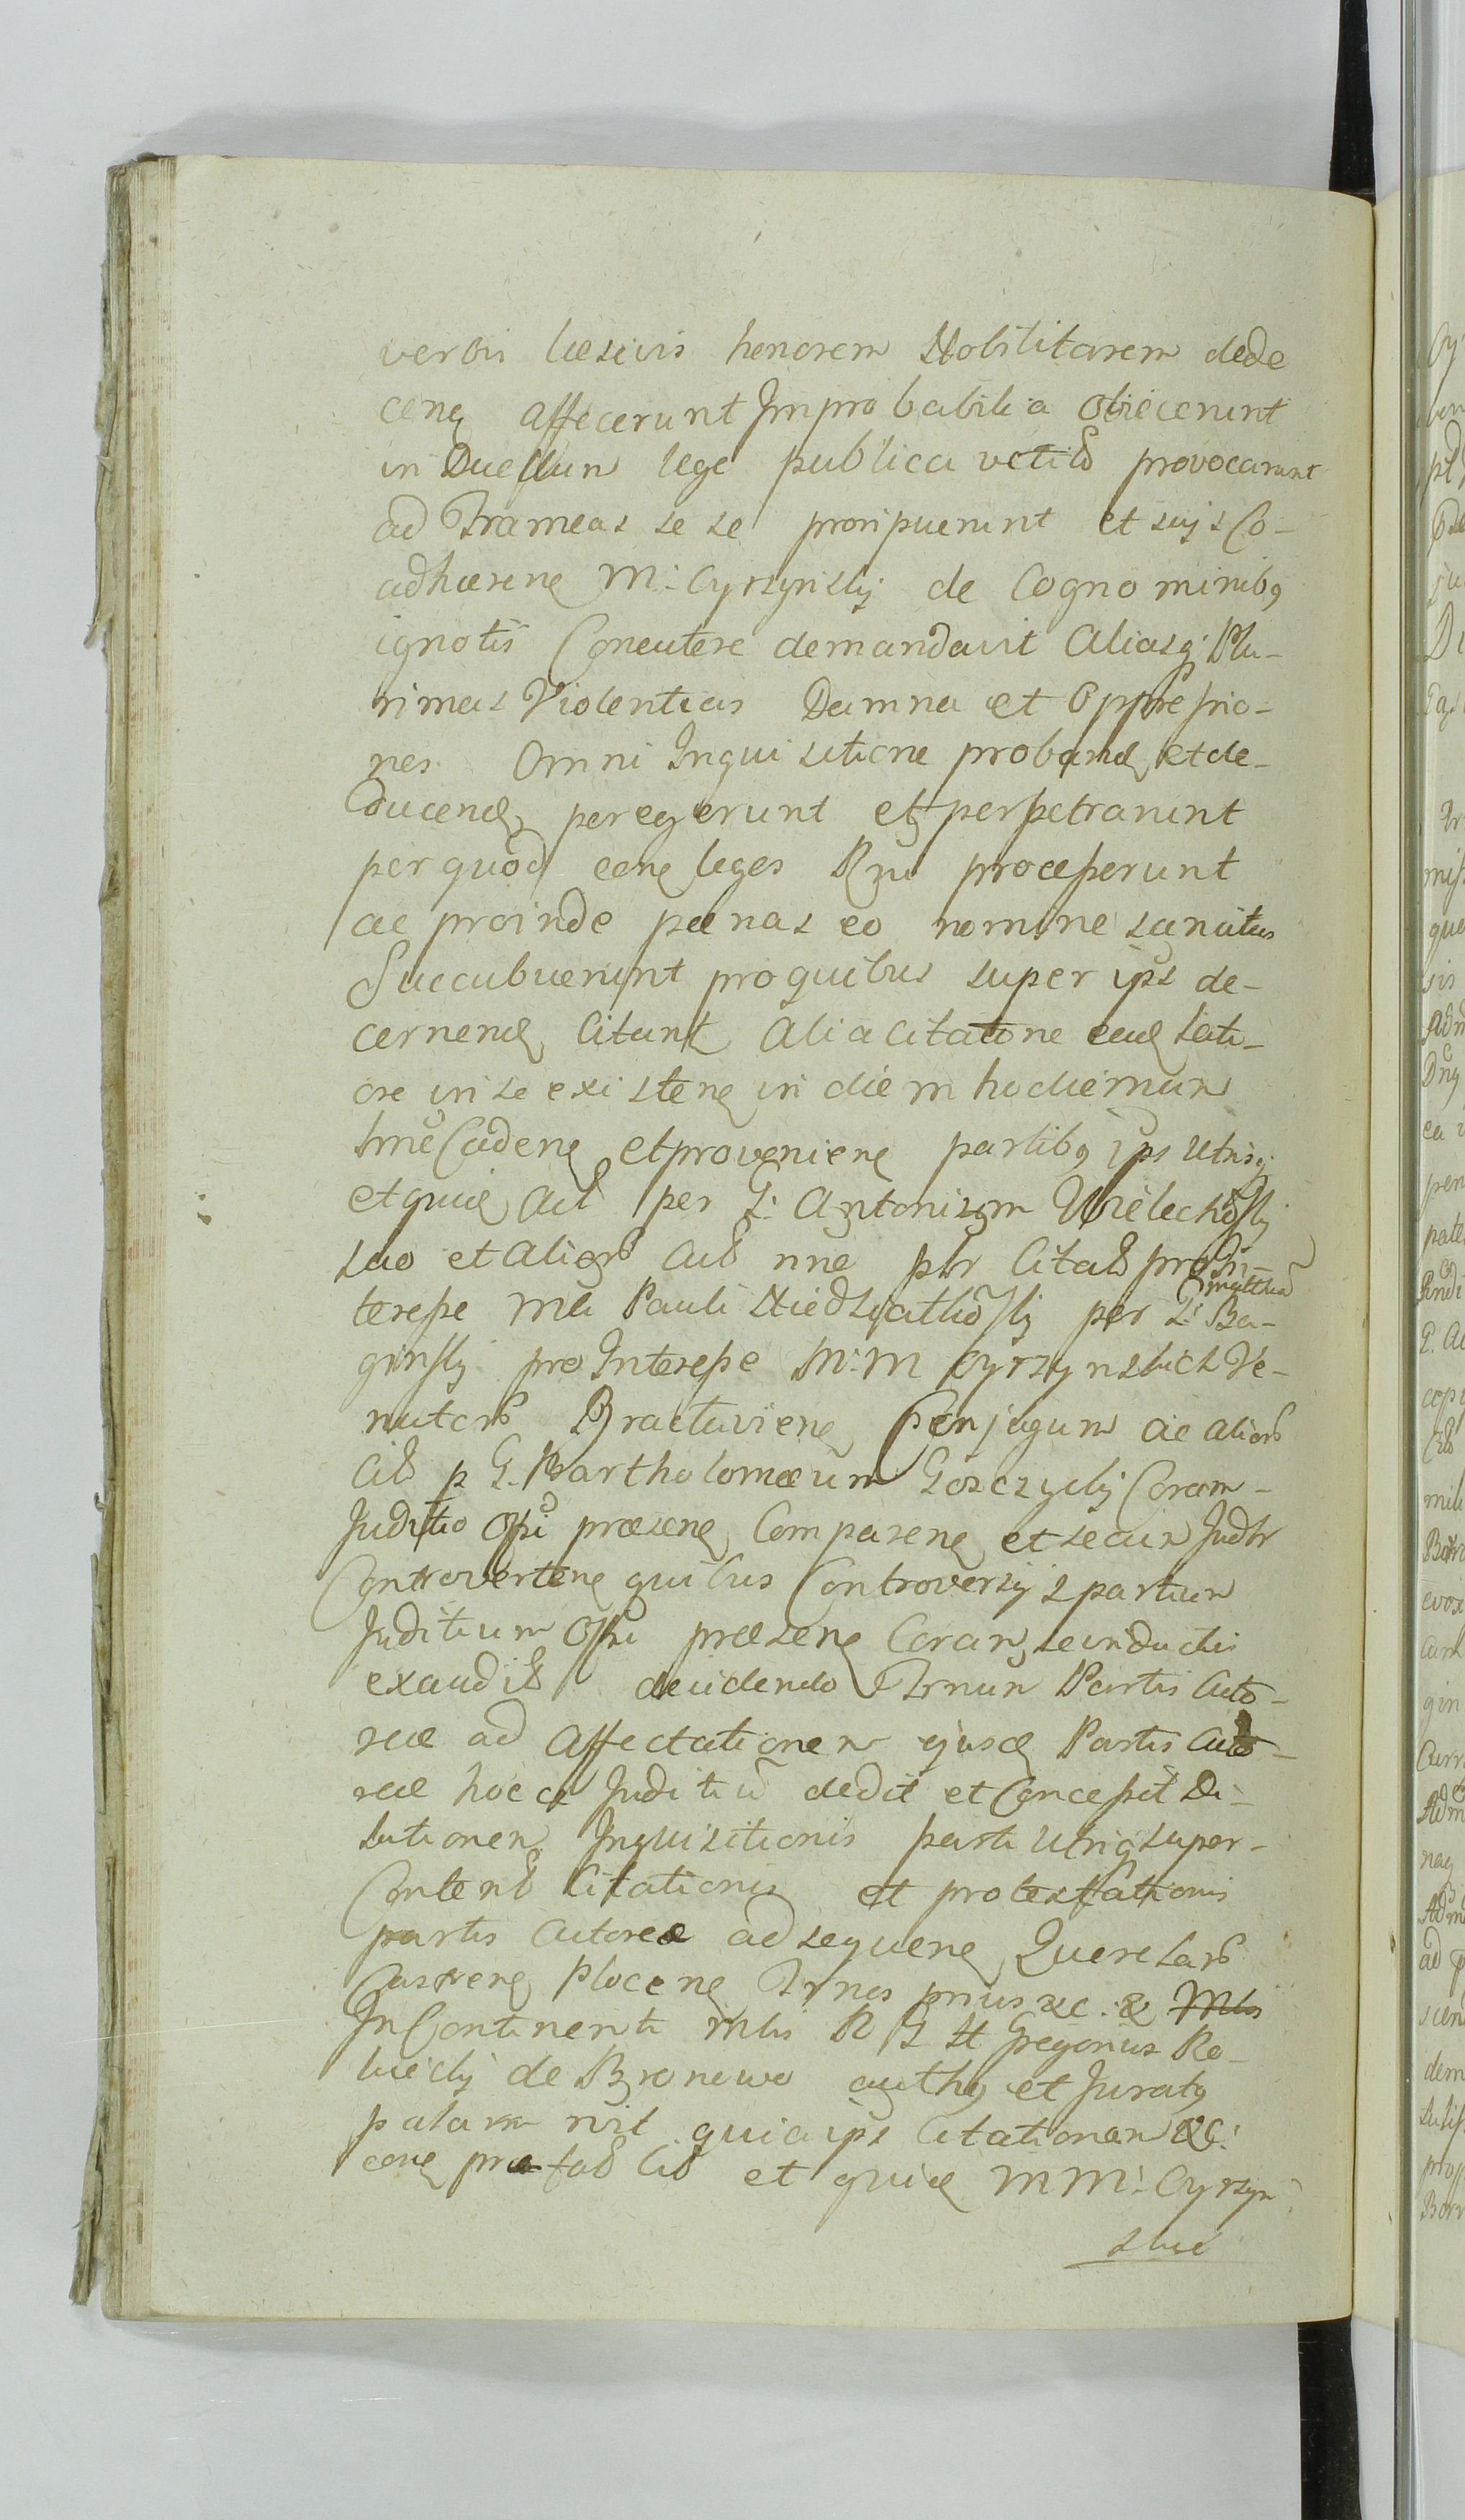 verbis læsivis honorem Nobilitarem dede
cenꝫ affecerunt Improbabilia obiecerunt
in Duellum lege publica vetitō provocarunt
ad Frameas se se proripuerunt et suis Co-
adhærenꝫ M: Cyrzynskj de Cognominibꝫ
ignotis Concutere demandavit Aliasq; Plu-
rimas Violentias Damna et Oppressio-
nes Omni Inquisitione probandꝫ et de-
ducendꝫ peregerunt et perpetrarunt
per quod eenꝫ leges Rgni processerunt
ac proinde pænas eo nomine sancitas
Succubuerunt pro quibus super ips de-
cernendꝫ Citant Alia Citatone eend lati-
ore in se existenꝫ in diem hodiernum
Tme Cadenꝫ et provenienꝫ partibꝫ ips Utrisq;
et quidꝫ Act per G: Antonium Wielechoskj
suo et alior Act nne ptr Citatō pro In-
teresse Mci Pauli Niedzwiathoskj per G: Matthiā Ba-
ginskj pro Interesse M: M Cyrzynskich Ve-
natorō Braclaviēnꝫ Conjugum ac aliorō
Citō p G. Bartholomæum Goszczyckj Coram
Juditio Osse præsenꝫ Comparenꝫ et secum Judtr
Controvertenꝫ quibus Controversijs partium
Juditium Osse præsenꝫ Coram se inductis
exauditō decidendo Trnum Partis Acto-
reæ ad Affectationem ejusdꝫ Partis Acto-
reæ hocce Juditiū dedit et Concessit Di-
lationem Inquisitionis parti Utriq super
Contentō Citationis et protestationis
partis Actoreæ ad sequenꝫ Querelarō
Castrenꝫ Plocenꝫ Trnos prius &c. & Mlis
In Continenti Mlis R G St Gregorius Ro-
kickj de Bronowo authꝫ et Juratꝫ
palam rvit quia ips Citationem &c:
eenꝫ præfatō Citō et quidꝫ M M: Cyrzyn
skic